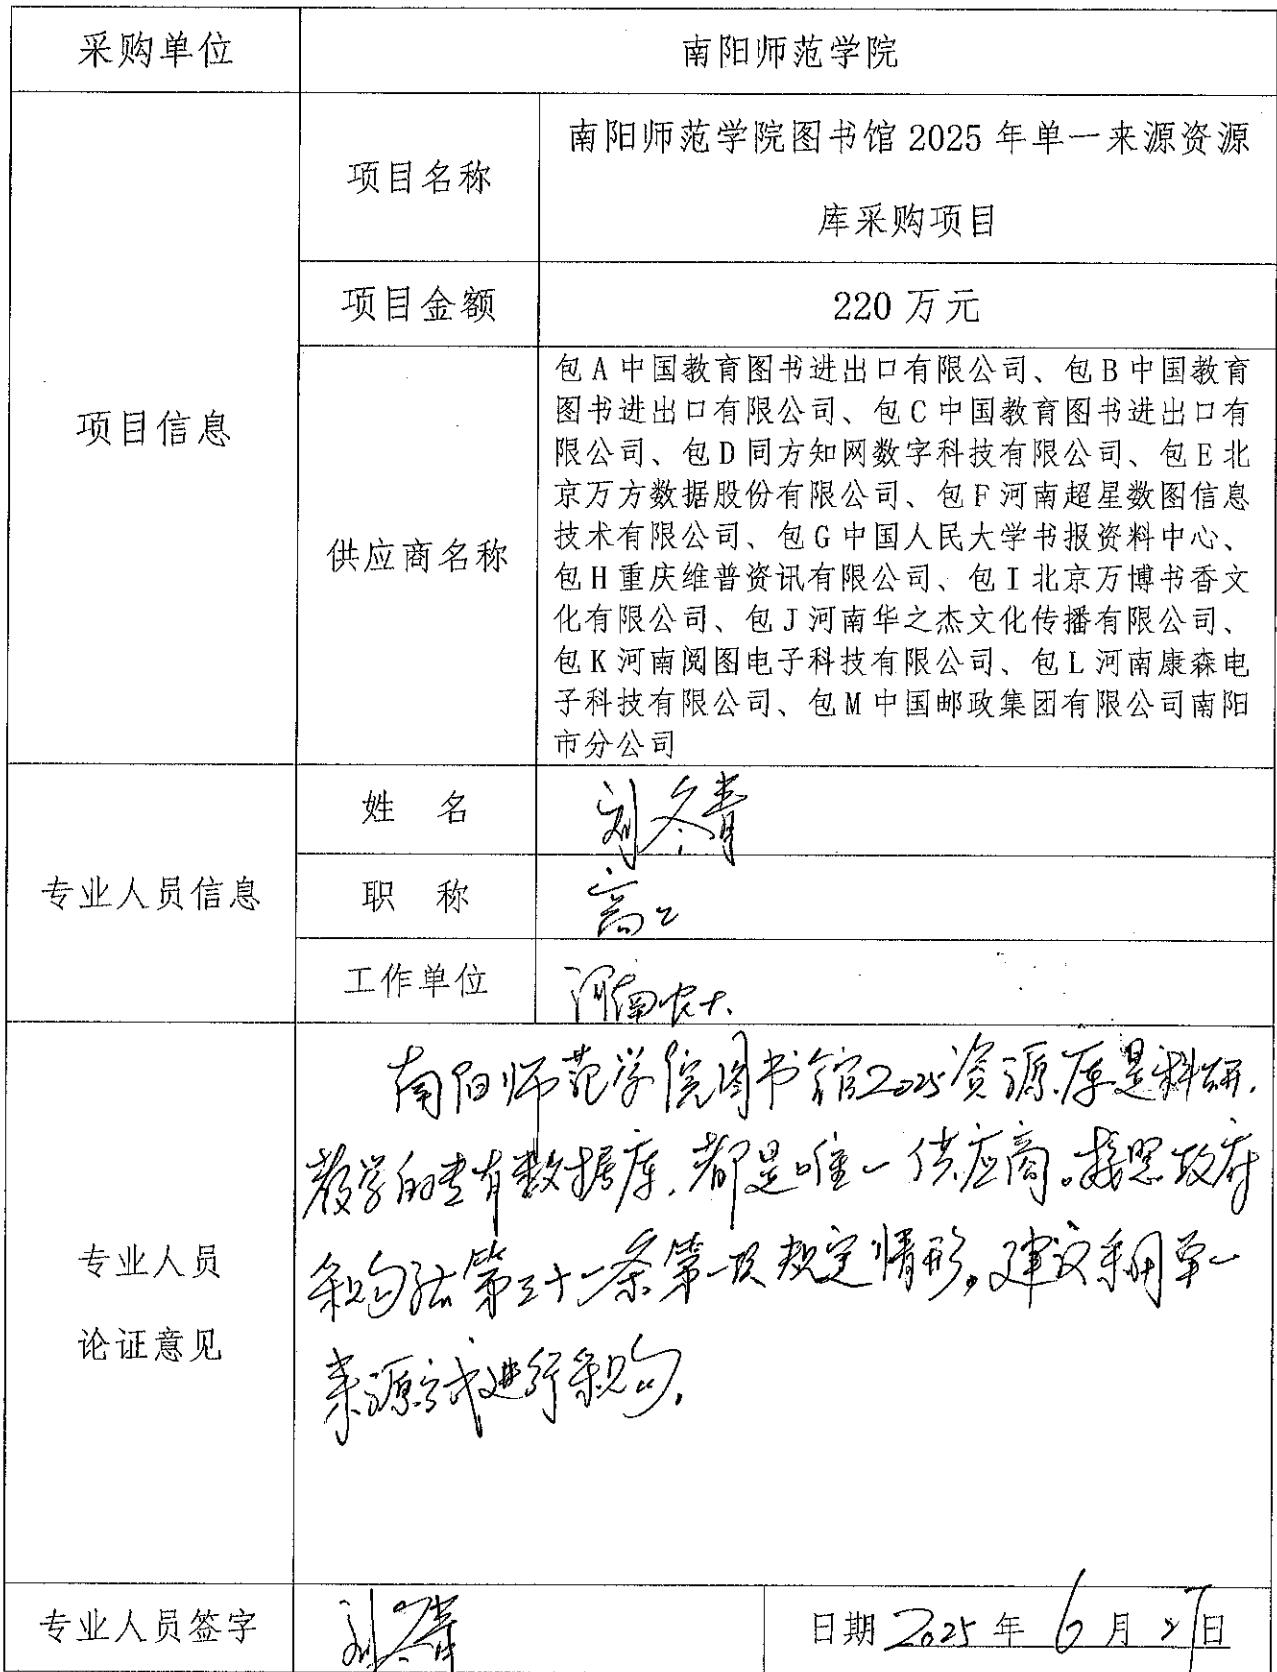 采购单位
南阳师范学院
项目信息
项目名称
南阳师范学院图书馆 2025 年单一来源资源
库采购项目
项目金额
220 万元
供应商名称
包A中国教育图书进出口有限公司、包B中国教育
图书进出口有限公司、包C中国教育图书进出口有
限公司、包D同方知网数字科技有限公司、包E北
京万方数据股份有限公司、包F河南超星数图信息
技术有限公司、包G中国人民大学书报资料中心、
包H重庆维普资讯有限公司、包I北京万博书香文
化有限公司、包J河南华之杰文化传播有限公司、
包K河南阅图电子科技有限公司、包L河南康森电
子科技有限公司、包M中国邮政集团有限公司南阳
市分公司
专业人员信息
姓 名
刘冬青
职 称
高工
工作单位
河南农大
专业人员
论证意见
南阳师范学院图书馆2025资源库是科研、
教学的专有数据库,都是唯一供应商。按照政府
采购法第三十一条第一项规定情形,建议采用单一
来源方式进行采购。
专业人员签字
刘冬青
日期 2025 年 6 月 27 日